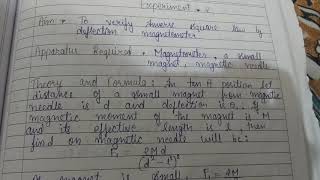 Experiment
Aim - To verify inverse square law by
deflection magnetometer
Apparatus Required - Magnetometer, a small
magnet, magnetic needle
Theory and Formula : In tan A position let
distance of a small magnet from magnetic
needle is d and deflection is θ, . If
magnetic moment of the magnet is M
and its effective length is l, then
find on magnetic needle will be:
F₁ = 2Md
(d² - l²)²
magnet is small, F₁ = 2M